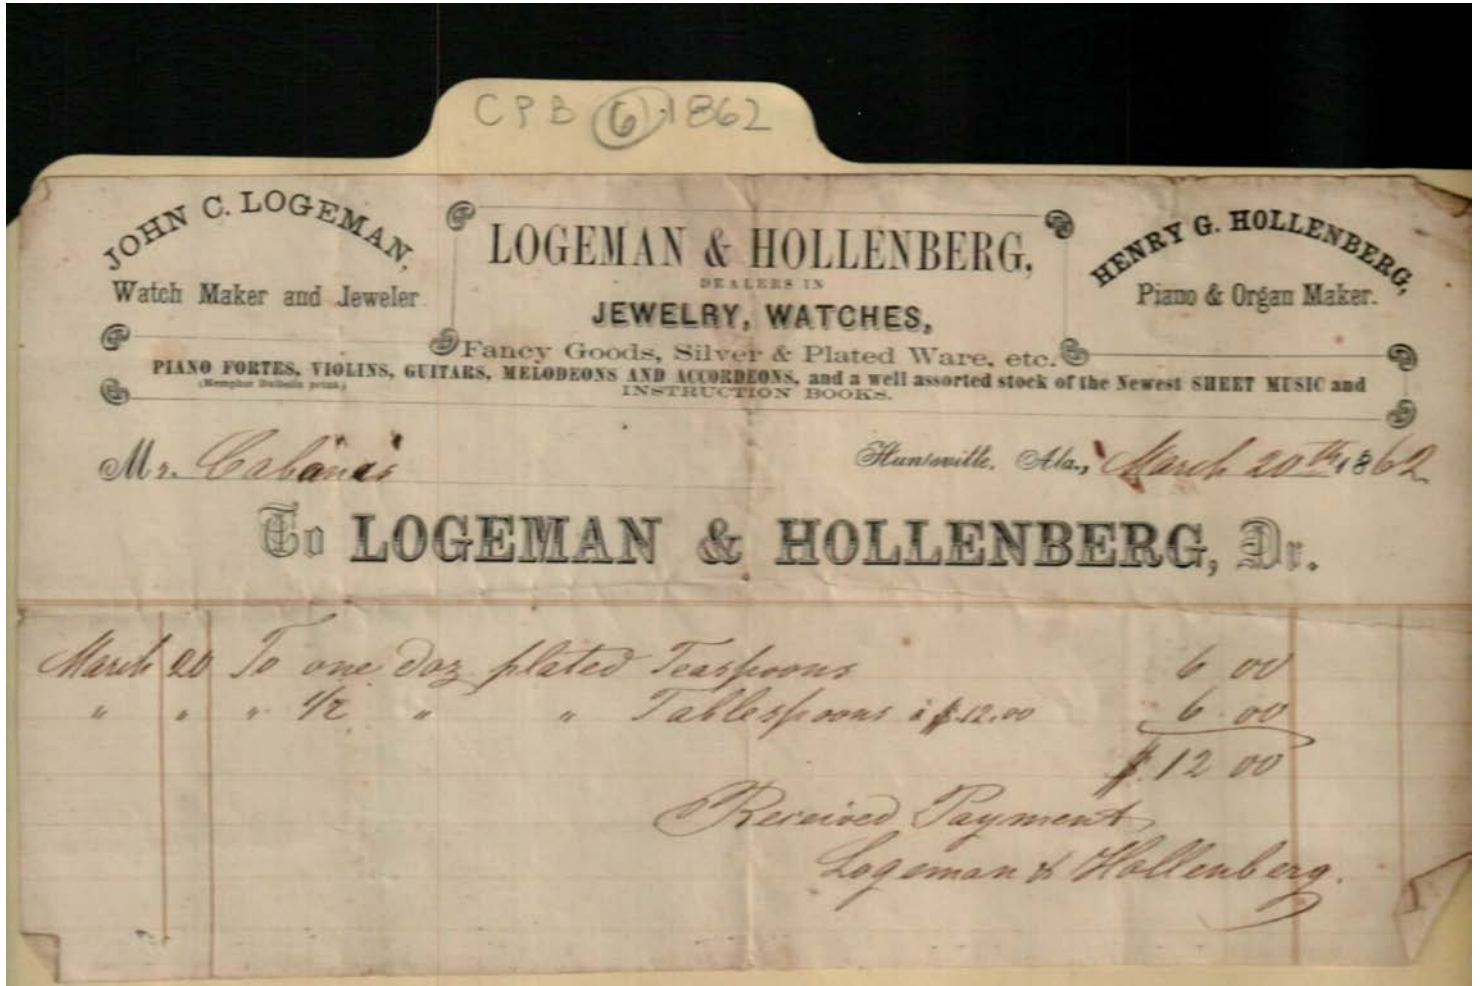 CPB 6 1862
JOHN C. LOGEMAN,
Watch Maker and Jeweler
LOGEMAN & HOLLENBERG,
DEALERS IN
JEWELRY, WATCHES,
Fancy Goods, Silver & Plated Ware, etc.
HENRY G. HOLLENBERG,
Piano & Organ Maker.
PIANO FORTES, VIOLINS, GUITARS, MELODEONS AND ACCORDEONS, and a well assorted stock of the Newest SHEET MUSIC and
(Memphis Bulletin print.)
INSTRUCTION BOOKS.
Mr. Cabanis
Huntsville, Ala., March 20th 1862
To LOGEMAN & HOLLENBERG, Dr.
March 20 To one doz plated Teaspoons 6 00
" " " 1/2 " " Tablespoons à $12.00 6 00
$12 00
Received Payment
Logeman & Hollenberg.